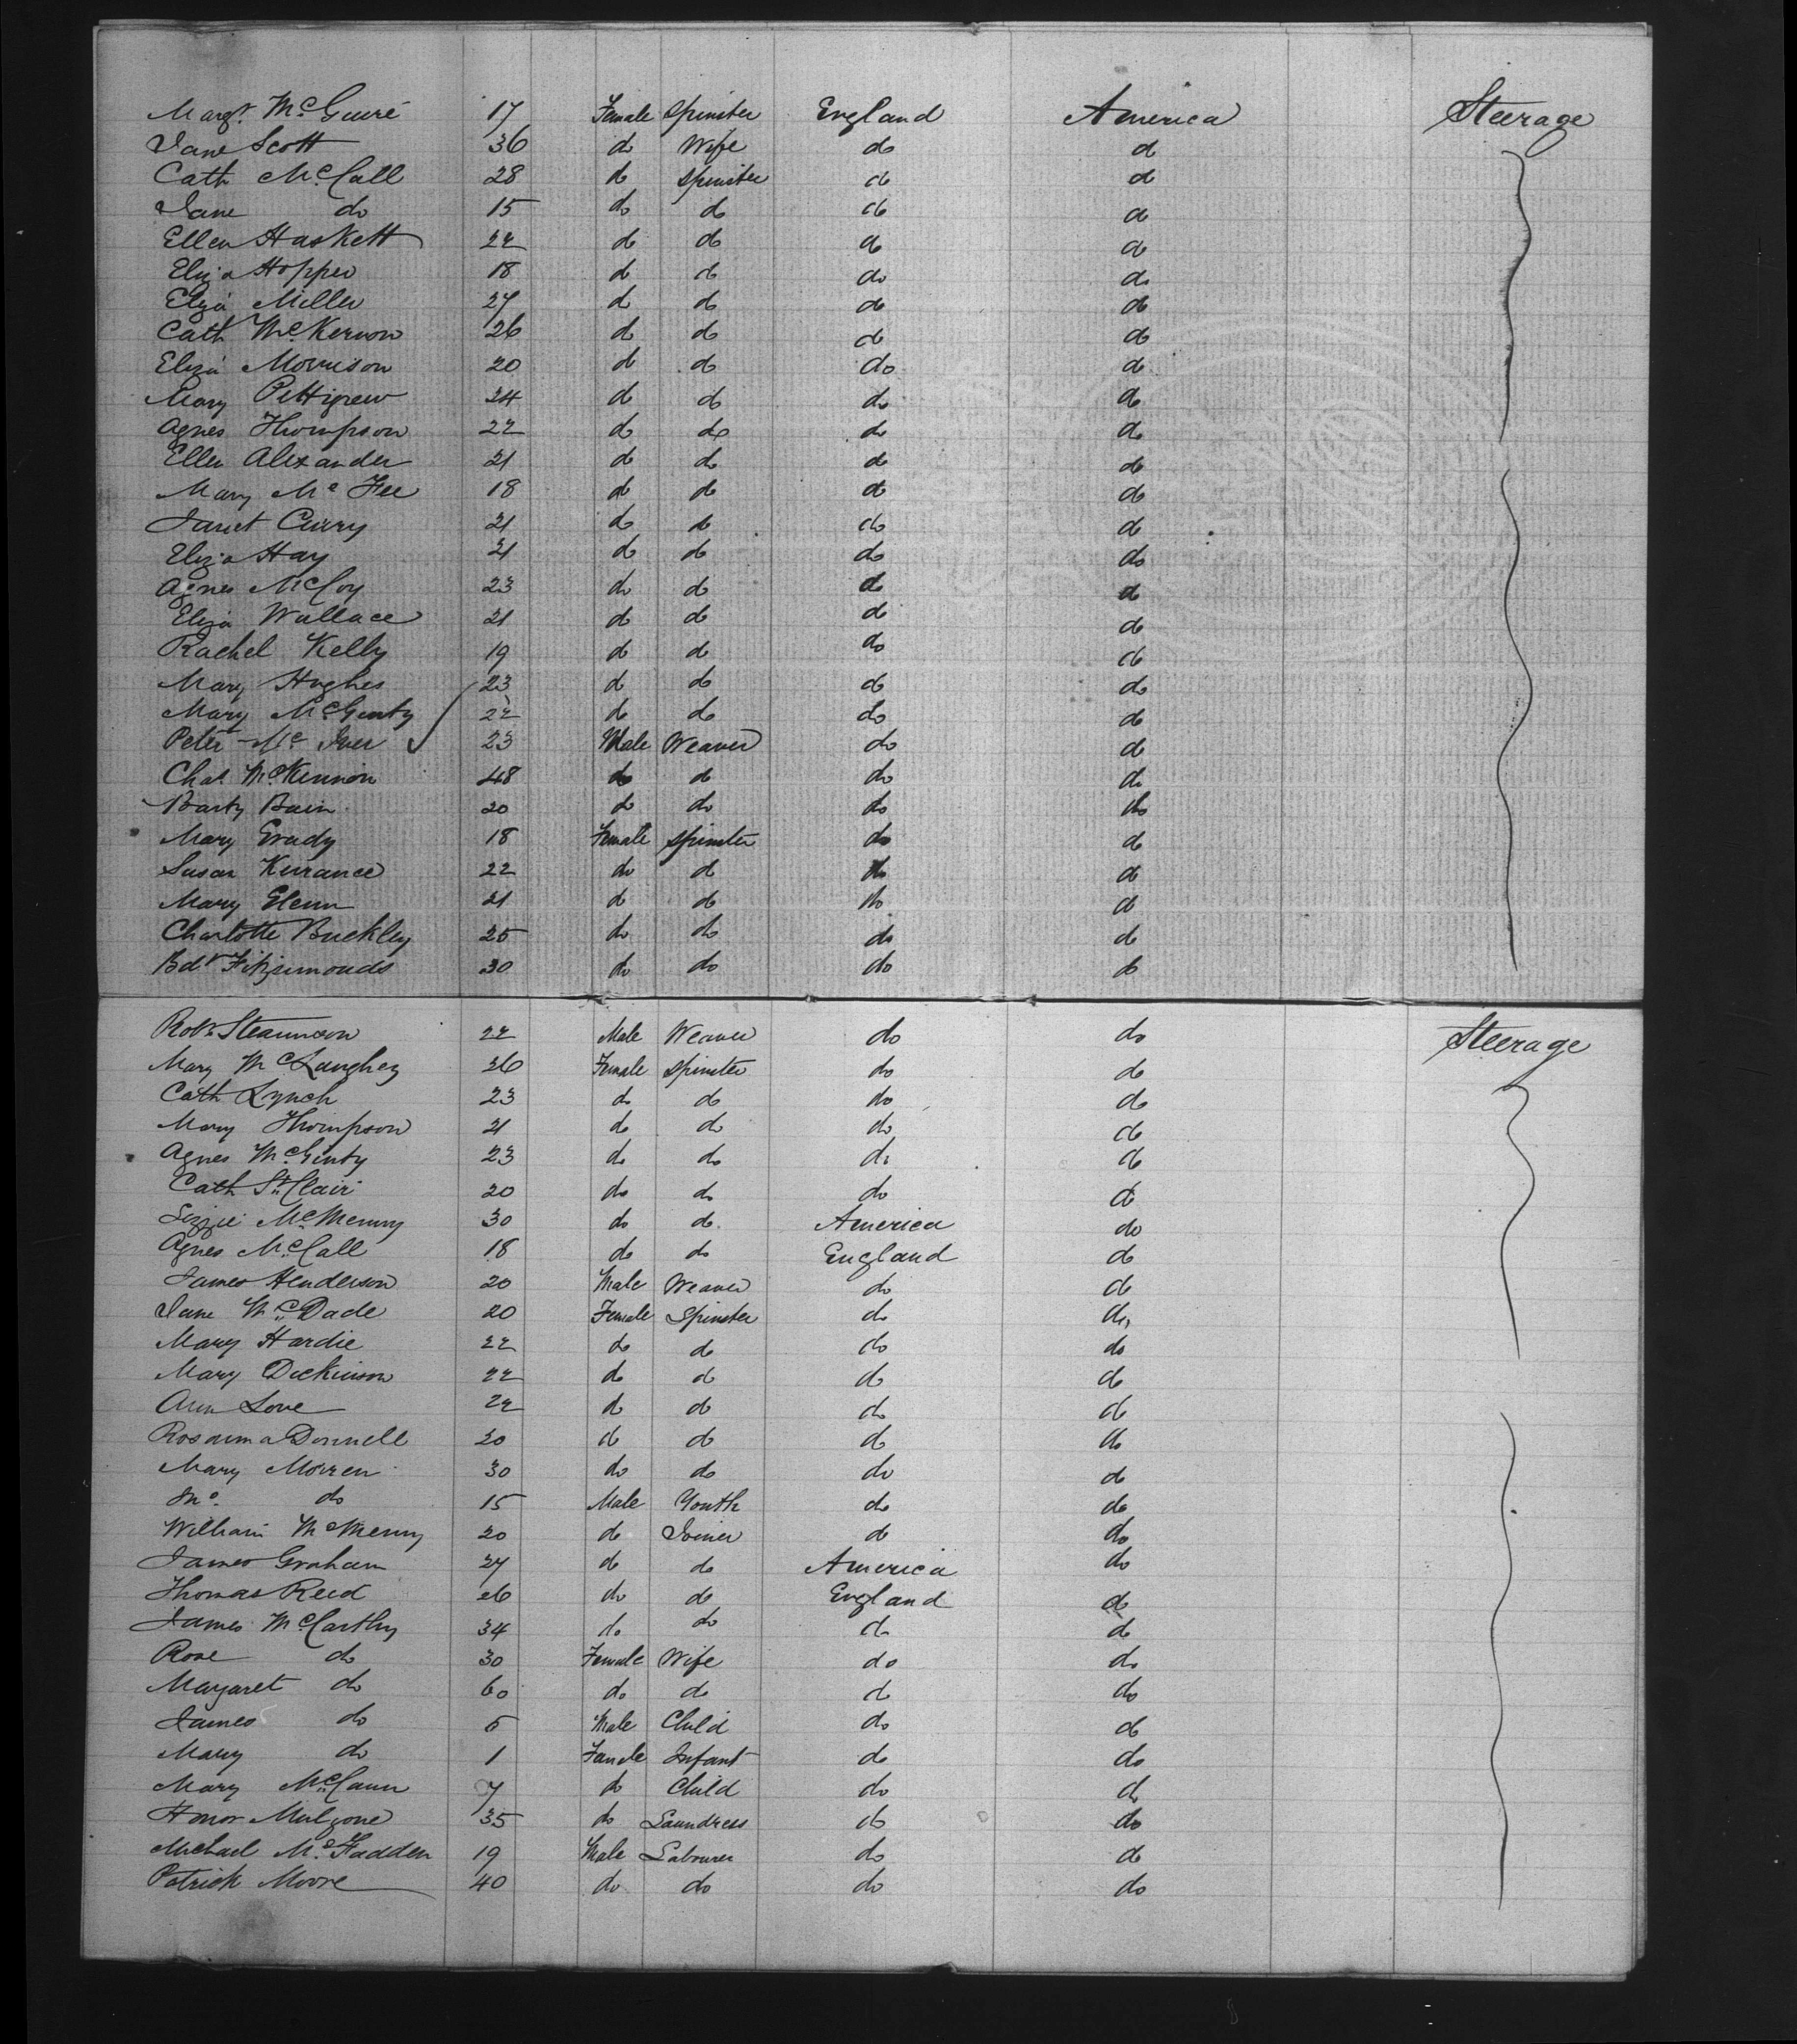 Margt. McGuire 17 Female Spinster England America Steerage
Jane Scott 36 do Wife do do
Cath McCall 28 do Spinster do do
Jane do 15 do do do do
Ellen Haskett 22 do do do do
Eliza Hopper 18 do do do do
Eliza Miller 27 do do do do
Cath McKernon 26 do do do do
Eliza Morrison 20 do do do do
Mary Pettigrew 24 do do do do
Agnes Thompson 22 do do do do
Ellen Alexander 21 do do do do
Mary McFee 18 do do do do
Janet Curry 21 do do do do
Eliza Hay 21 do do do do
Agnes McCoy 23 do do do do
Eliza Wallace 21 do do do do
Rachel Kelly 19 do do do do
Mary Hughes 23 do do do do
Mary McGinty 22 do do do do
Peter McIver 23 Male Weaver do do
Chas McKinnon 48 do do do do
Barty Bain 20 do do do do
Mary Grady 18 Female Spinster do do
Susan Kerrance 22 do do do do
Mary Glenn 21 do do do do
Charlotte Buckley 25 do do do do
Bdt Fitzsimonds 30 do do do do
Robt 22 Male Weaver do do Steerage
Mary 26 Female Spinster do do
Cath Lynch 23 do do do do
Mary Thompson 21 do do do do
Agnes McGinty 23 do do do do
Cath St Clair 20 do do do do
Lizzie McMenny 30 do do America do
Agnes McCall 18 do do England do
James Henderson 20 Male Weaver do do
Jane McDade 20 Female Spinster do do
Mary Hardie 22 do do do do
Mary Dickinson 22 do do do do
Ann Love 22 do do do do
Rosanna Donnell 20 do do do do
Mary Morren 30 do do do do
Jno. do 15 Male Youth do do
William McMenny 20 do Joiner do do
James Graham 27 do do America do
Thomas Reed 26 do do England do
James McCarthy 34 do do do do
Rose do 30 Female Wife do do
Margaret do 60 do do do do
James do 5 Male Child do do
Mary do 1 Female Infant do do
Mary McCann 7 do Child do do
Honor 35 do Laundress do do
Michael McFadden 19 Male Labourer do do
Patrick Moore 40 do do do do